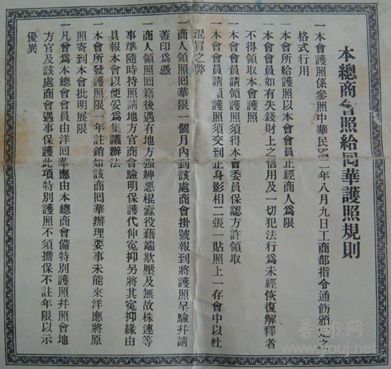 本總商會照給回華護照規則
一本會護照係參照中華民國二年八月九日工商部指令通飭頒定之
格式行用
一本會所給護照以本會會員正經商人爲限
一本會會員如有失錢財上之信用及一切犯法行爲未經恢復解釋者
不得領取本會護照
一本會會員請領護照須得本會委員保認方許領取
一本會會員請領護照須交到正身影相二張一貼照上一存會中以杜
混冒之弊
一商人領照回華限一個月內到該處商會掛號報到將照呈驗幷請
蓋印爲憑
一商人領照回籍後遇有地方強紳惡棍蠹役藉端欺壓及無故株連等
事準隨時持照請地方官商會驗明保護代伸寃抑另將其寃抑緣由
具報本會以便妥爲集議辦法
一本會所發護照限一年註銷如該商回華辦理要事未能來洋應將原
照寄到本會批明展限
一凡曾爲本總商會會員由洋回華應由本總商會備特別護照幷照會地
方官及該處商會遇事保護此項特別護照不須擔保不註年限以示
優異